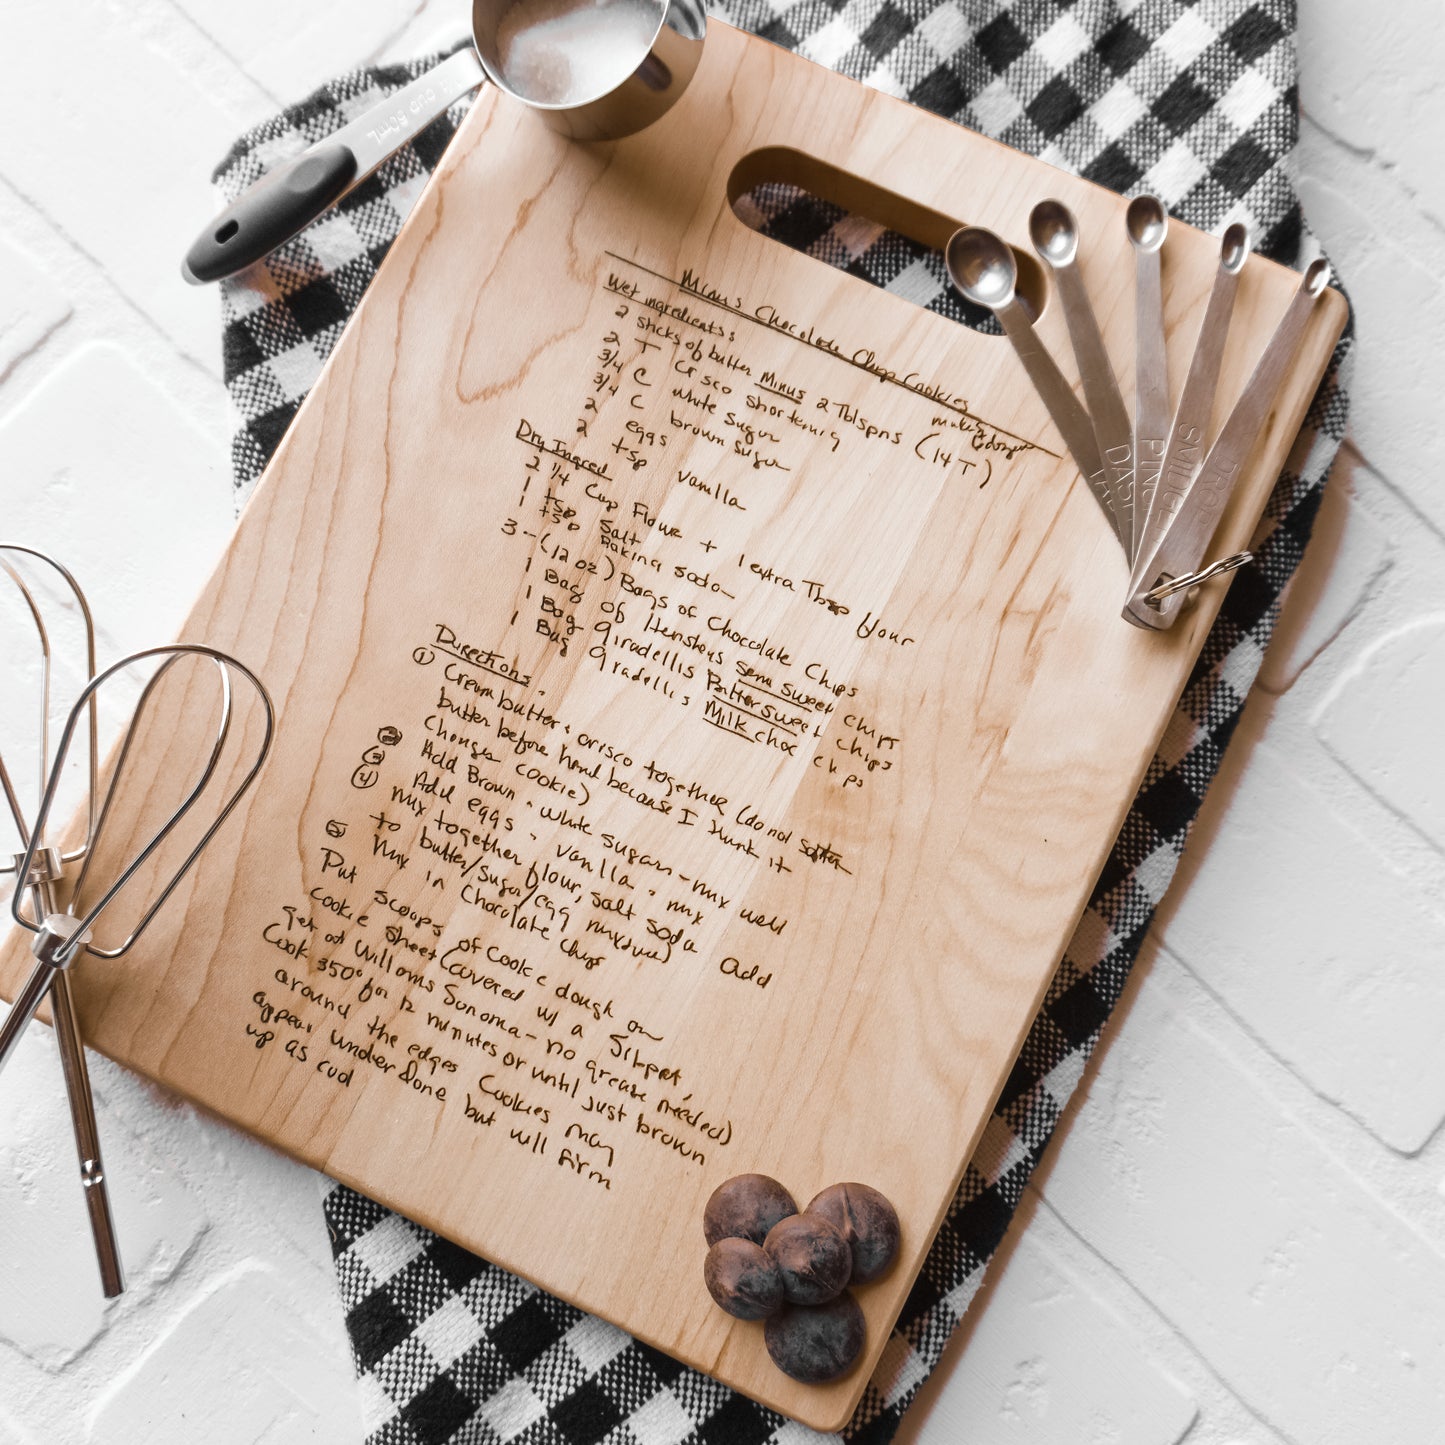 1/4 CUP 60mL
Minus Chocolate Chip Cookies
makes dozen
Wet ingredients:
2 sticks of butter Minus 2 Tblspns (14 T)
2 T Crisco shortening
3/4 C white sugar
3/4 C brown sugar
2 eggs
2 tsp vanilla
Dry Ingred
2 1/4 Cup Flour + 1 extra Tbsp flour
1 tsp Salt
1 tsp Baking soda
3 - (12 oz) Bags of Chocolate Chips
1 Bag of Hersheys semi sweet chips
1 Bag Giradellis Bittersweet chips
1 Bag Giradellis Milk choc chips
Directions:
① Cream butter + crisco together (do not soften
butter before hand because I think it
changes cookie)
② Add Brown + white sugars - mix well
③ Add eggs + vanilla + mix
④ mix together flour, salt soda add
to butter/sugar/egg mixture)
⑤ Mix in Chocolate chips
Put scoops of cookie dough on
cookie sheet (covered w/ a Silpat,
get at Williams Sonoma - no grease needed)
Cook 350° for 12 minutes or until just brown
around the edges Cookies may
appear under done but will firm
up as cool
DASH
PINCH
SMIDGEN
DROP